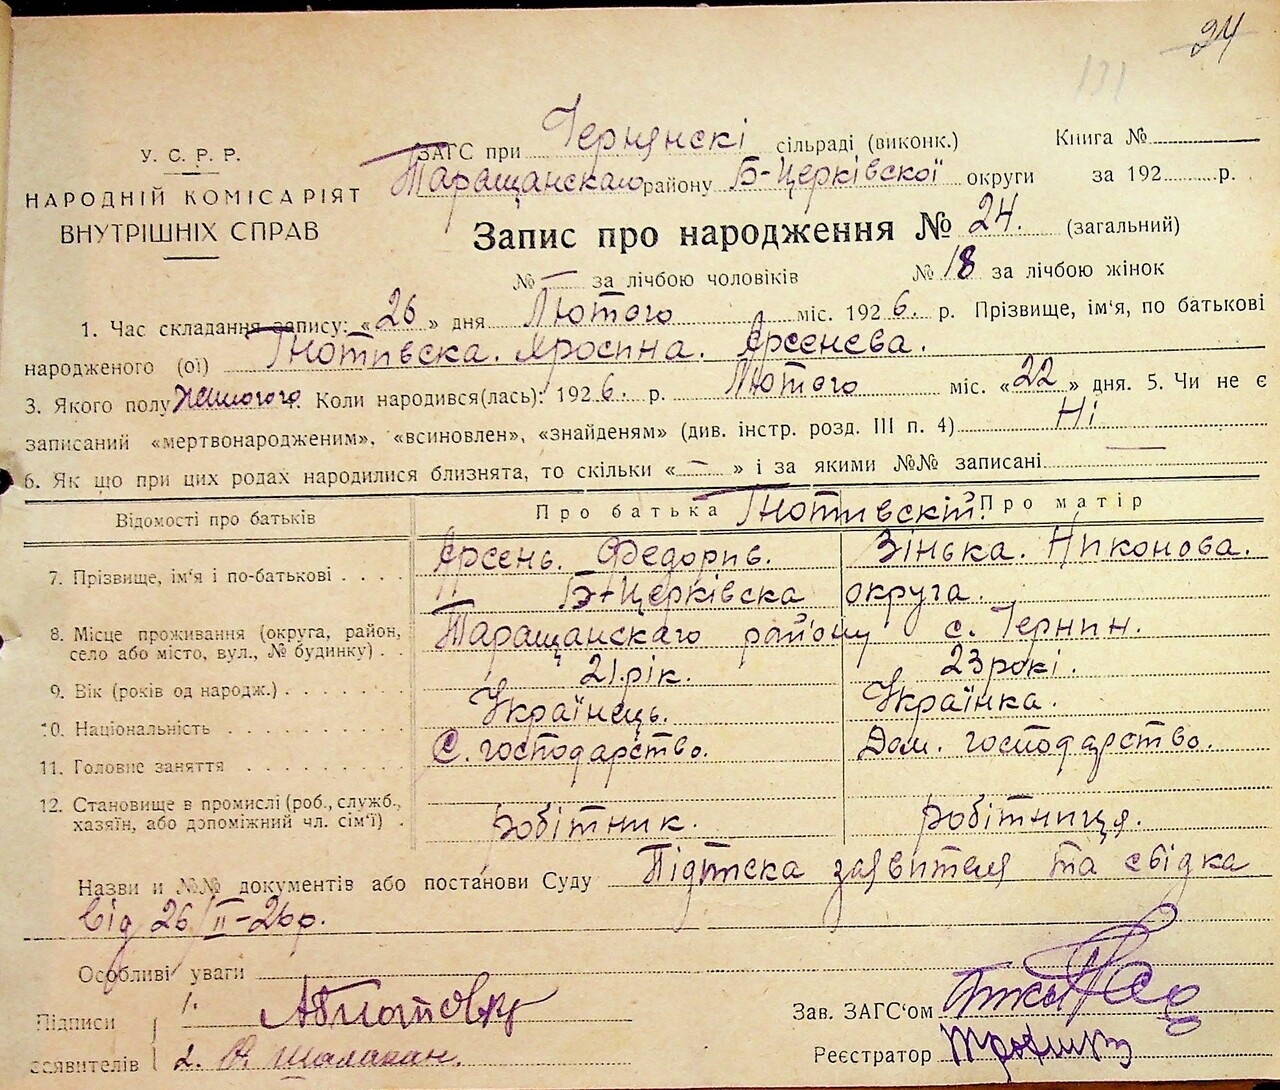 24
131
У. С. Р. Р.
НАРОДНІЙ КОМІСАРІЯТ
ВНУТРІШНІХ СПРАВ
ЗАГС при Чернинскі сільраді (виконк.) Книга №
Таращанскаго району Б-Церківскої округи за 192 р.
Запис про народження № 24. (загальний)
№ — за лічбою чоловіків № 18 за лічбою жінок
1. Час складання запису: «26» дня Лютого міс. 1926. р. Прізвище, ім‘я, по батькові
народженого (ої) Гнотивска. Яросина. Арсенєва.
3. Якого полу Жиногого Коли народився(лась): 1926. р. Лютого міс. «22» дня. 5. Чи не є
записаний «мертвонародженим», «всиновлен», «знайденям» (див. інстр. розд. III п. 4) Ні
6. Як що при цих родах народилися близнята, то скільки « — » і за якими №№ записані —
Відомості про батьків Про батька Гнотивскій. Про матір
7. Прізвище, ім‘я і по-батькові Арсень. Федорив. Зінька. Никонова.
Б-Церківска округа.
8. Місце проживання (округа, район, село або місто, вул., № будинку) Таращанскаго району с. Чернин.
9. Вік (років од народж.) 21.рік. 23 рокі.
10. Національність Українець. Українка.
11. Головне заняття С. господарство. Дом. господарство.
12. Становище в промислі (роб., служб., хазяїн, або допоміжний чл. сім‘ї) робітник. робітниця.
Назви и №№ документів або постанови Суду Підписка заявителя та свідка
від 26/II-26р.
Особливі уваги
Підписи заявителів
1.
2.
Зав. ЗАГС‘ом
Реєстратор